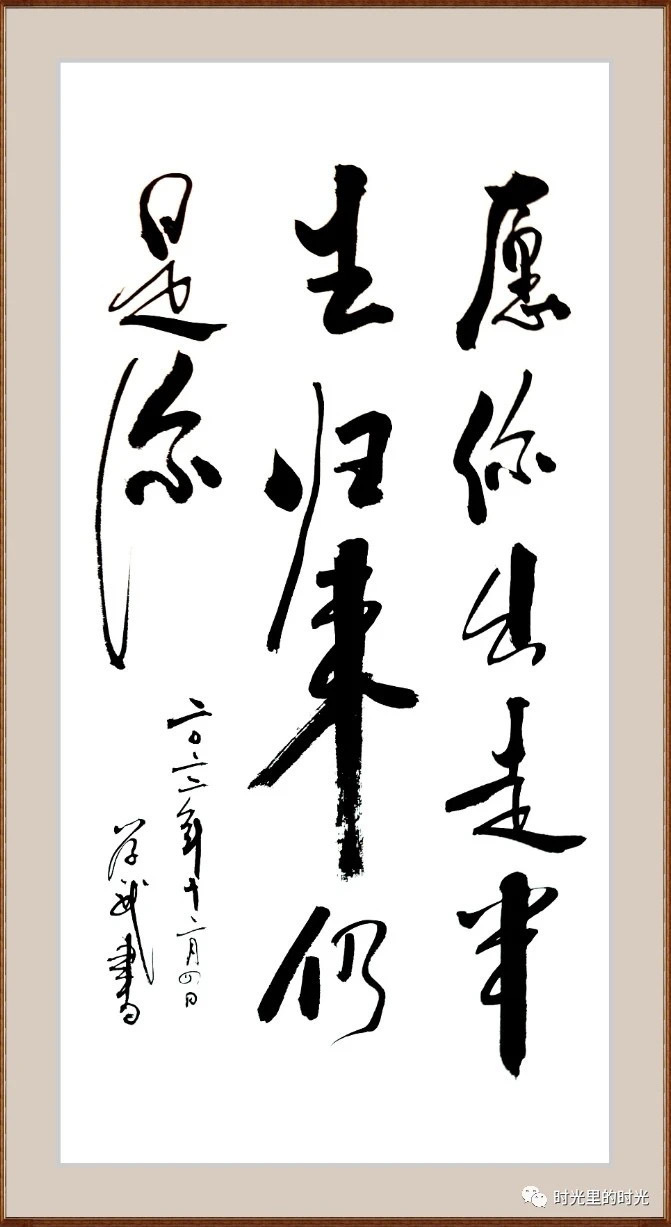 愿你出走半
生归来仍
是你
二〇二二年十二月四日
学武书
时光里的时光